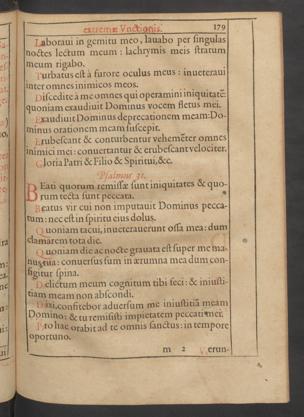 extremæ Vnctionis. 179
Laboraui in gemitu meo, lauabo per singulas
noctes lectum meum : lachrymis meis stratum
meum rigabo.
Turbatus est à furore oculus meus : inueteraui
inter omnes inimicos meos.
Discedite à me omnes qui operamini iniquitatē:
quoniam exaudiuit Dominus vocem fletus mei.
Exaudiuit Dominus deprecationem meam: Do-
minus orationem meam suscepit.
Erubescant & conturbentur vehemēter omnes
inimici mei : conuertantur & erubescant velociter.
Gloria Patri & Filio & Spiritui, &c.
Psalmus 31.
BEati quorum remissæ sunt iniquitates & quo-
rum tecta sunt peccata.
Beatus vir cui non imputauit Dominus pecca-
tum : nec est in spiritu eius dolus.
Quoniam tacui, inueterauerunt ossa mea : dum
clamarem tota die.
Quoniam die ac nocte grauata est super me ma-
nus tua : conuersus sum in ærumna mea dum con-
figitur spina.
Delictum meum cognitum tibi feci : & iniusti-
tiam meam non abscondi.
Dixi, confitebor aduersum me iniustitiā meam
Domino : & tu remisisti impietatem peccati mei.
Pro hac orabit ad te omnis sanctus : in tempore
oportuno.
m 2 Verun-